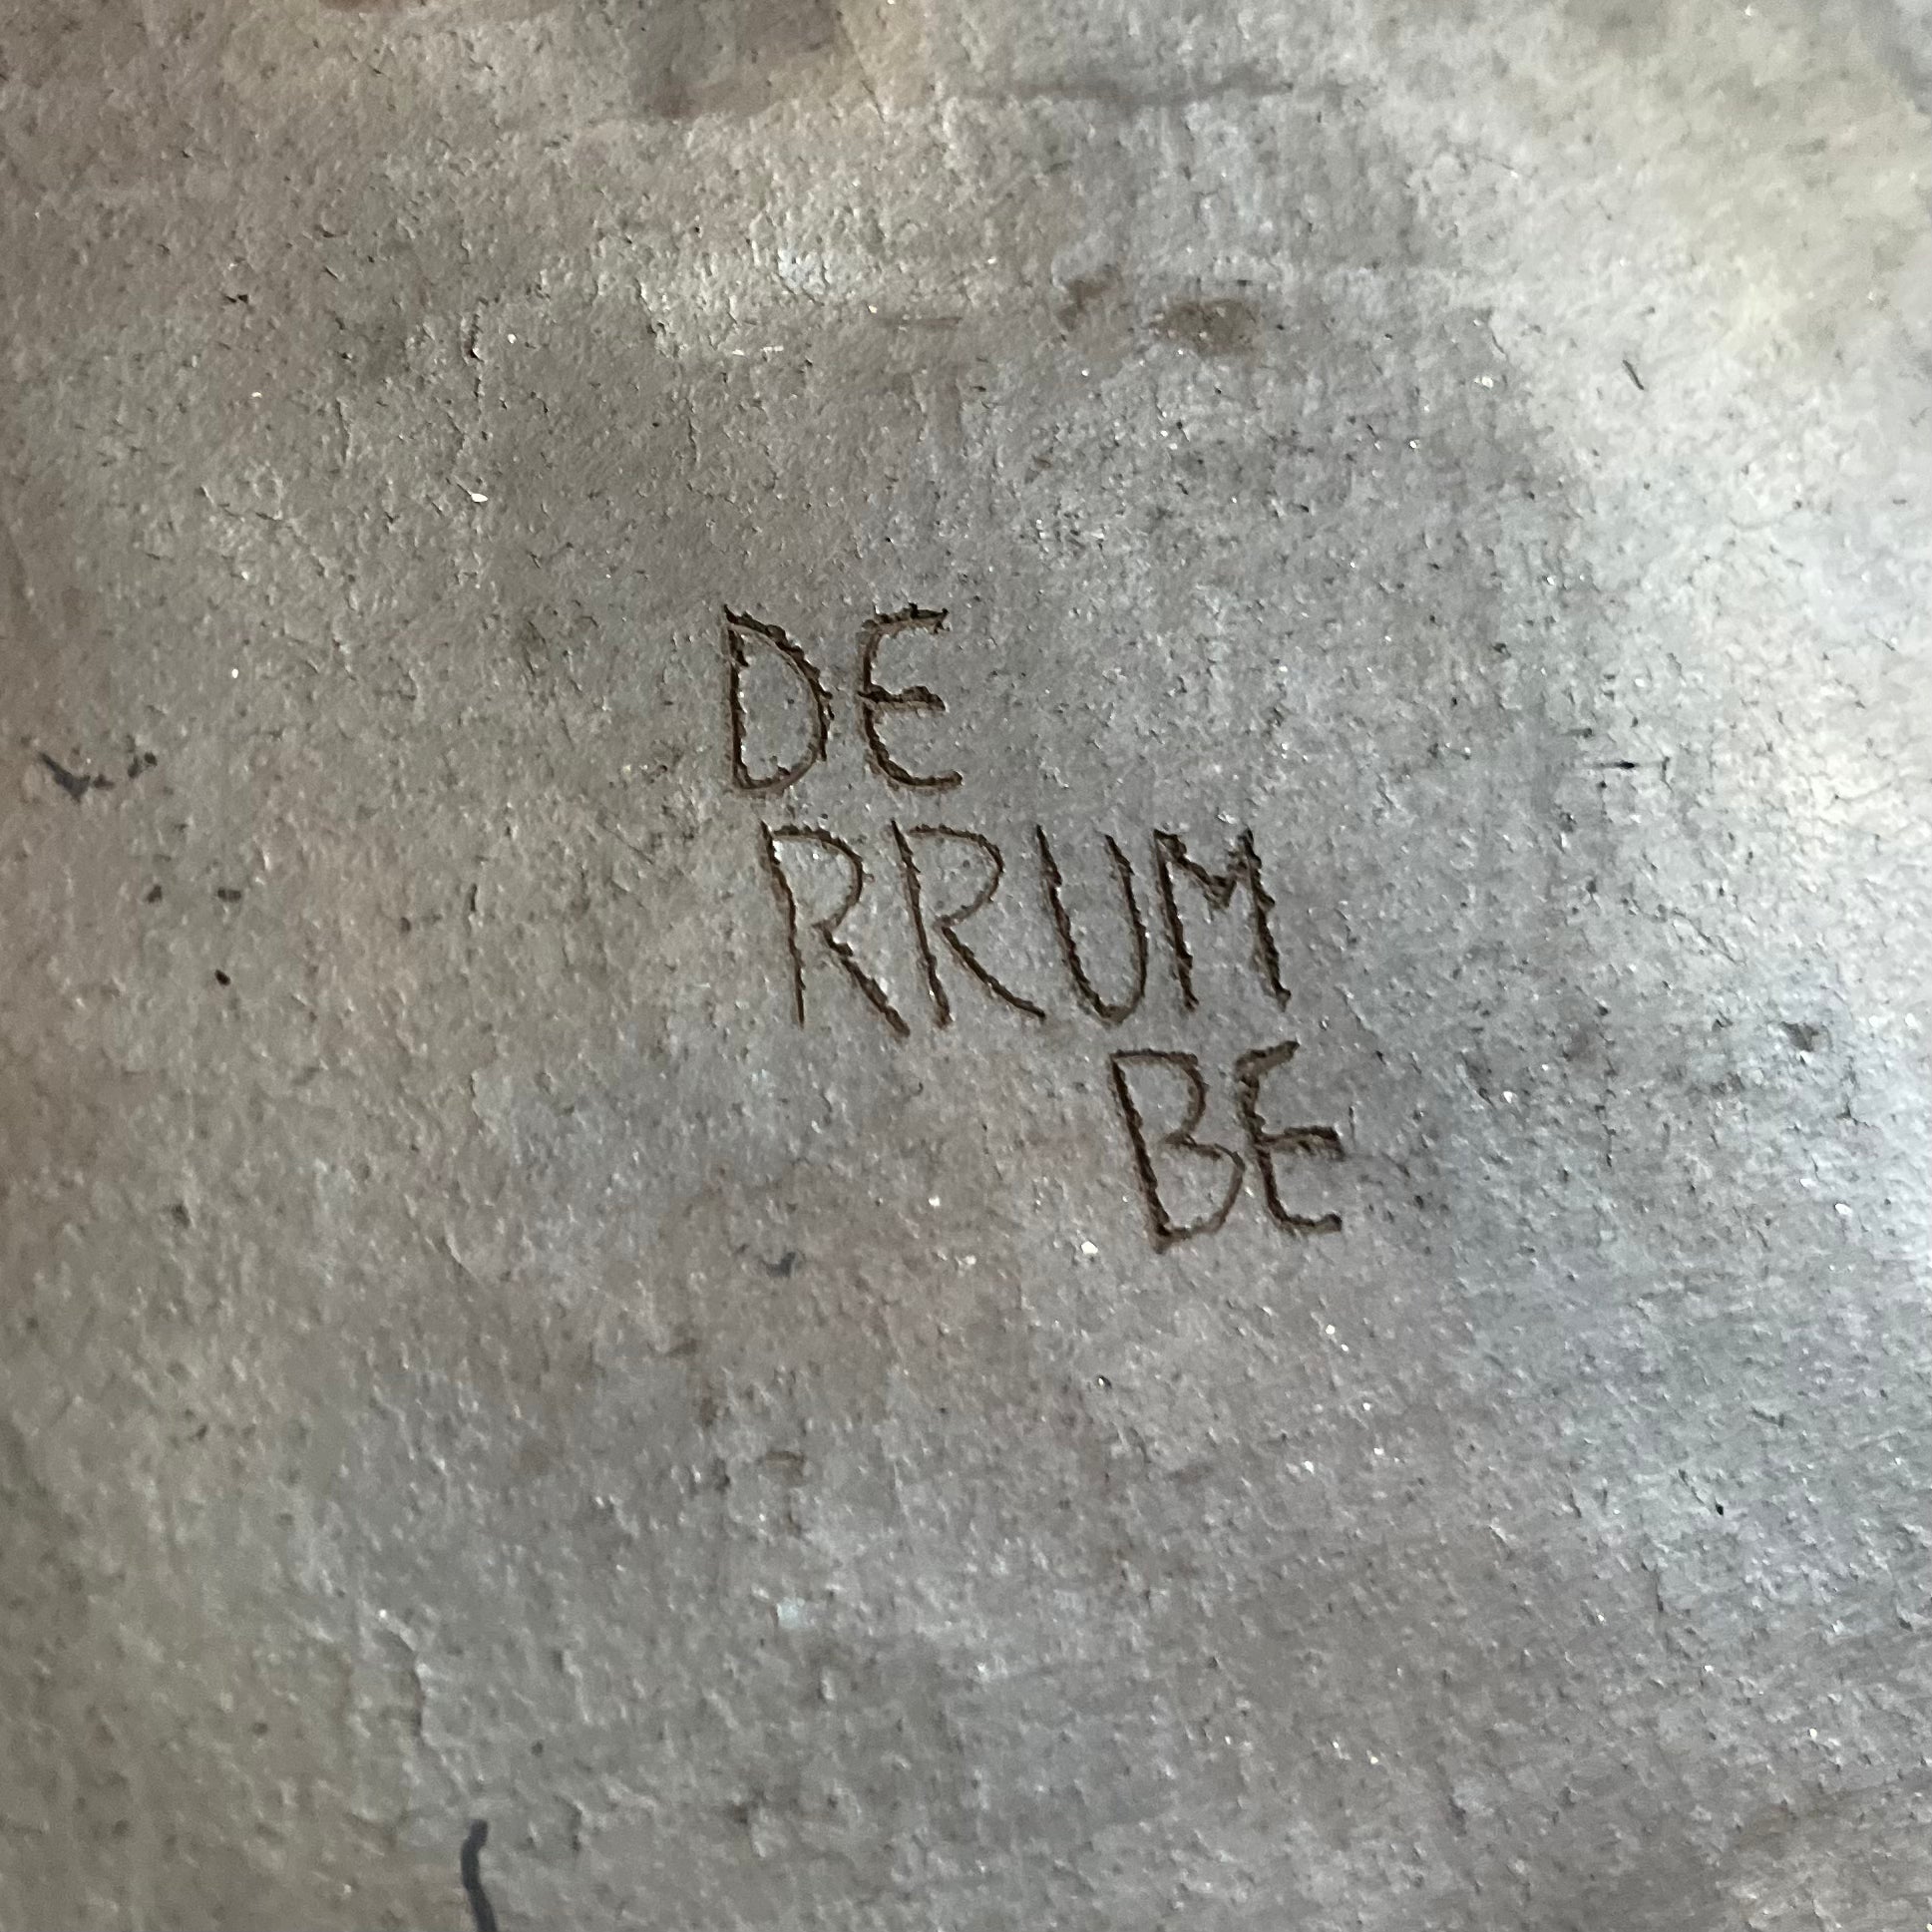 DE
RRUM
BE